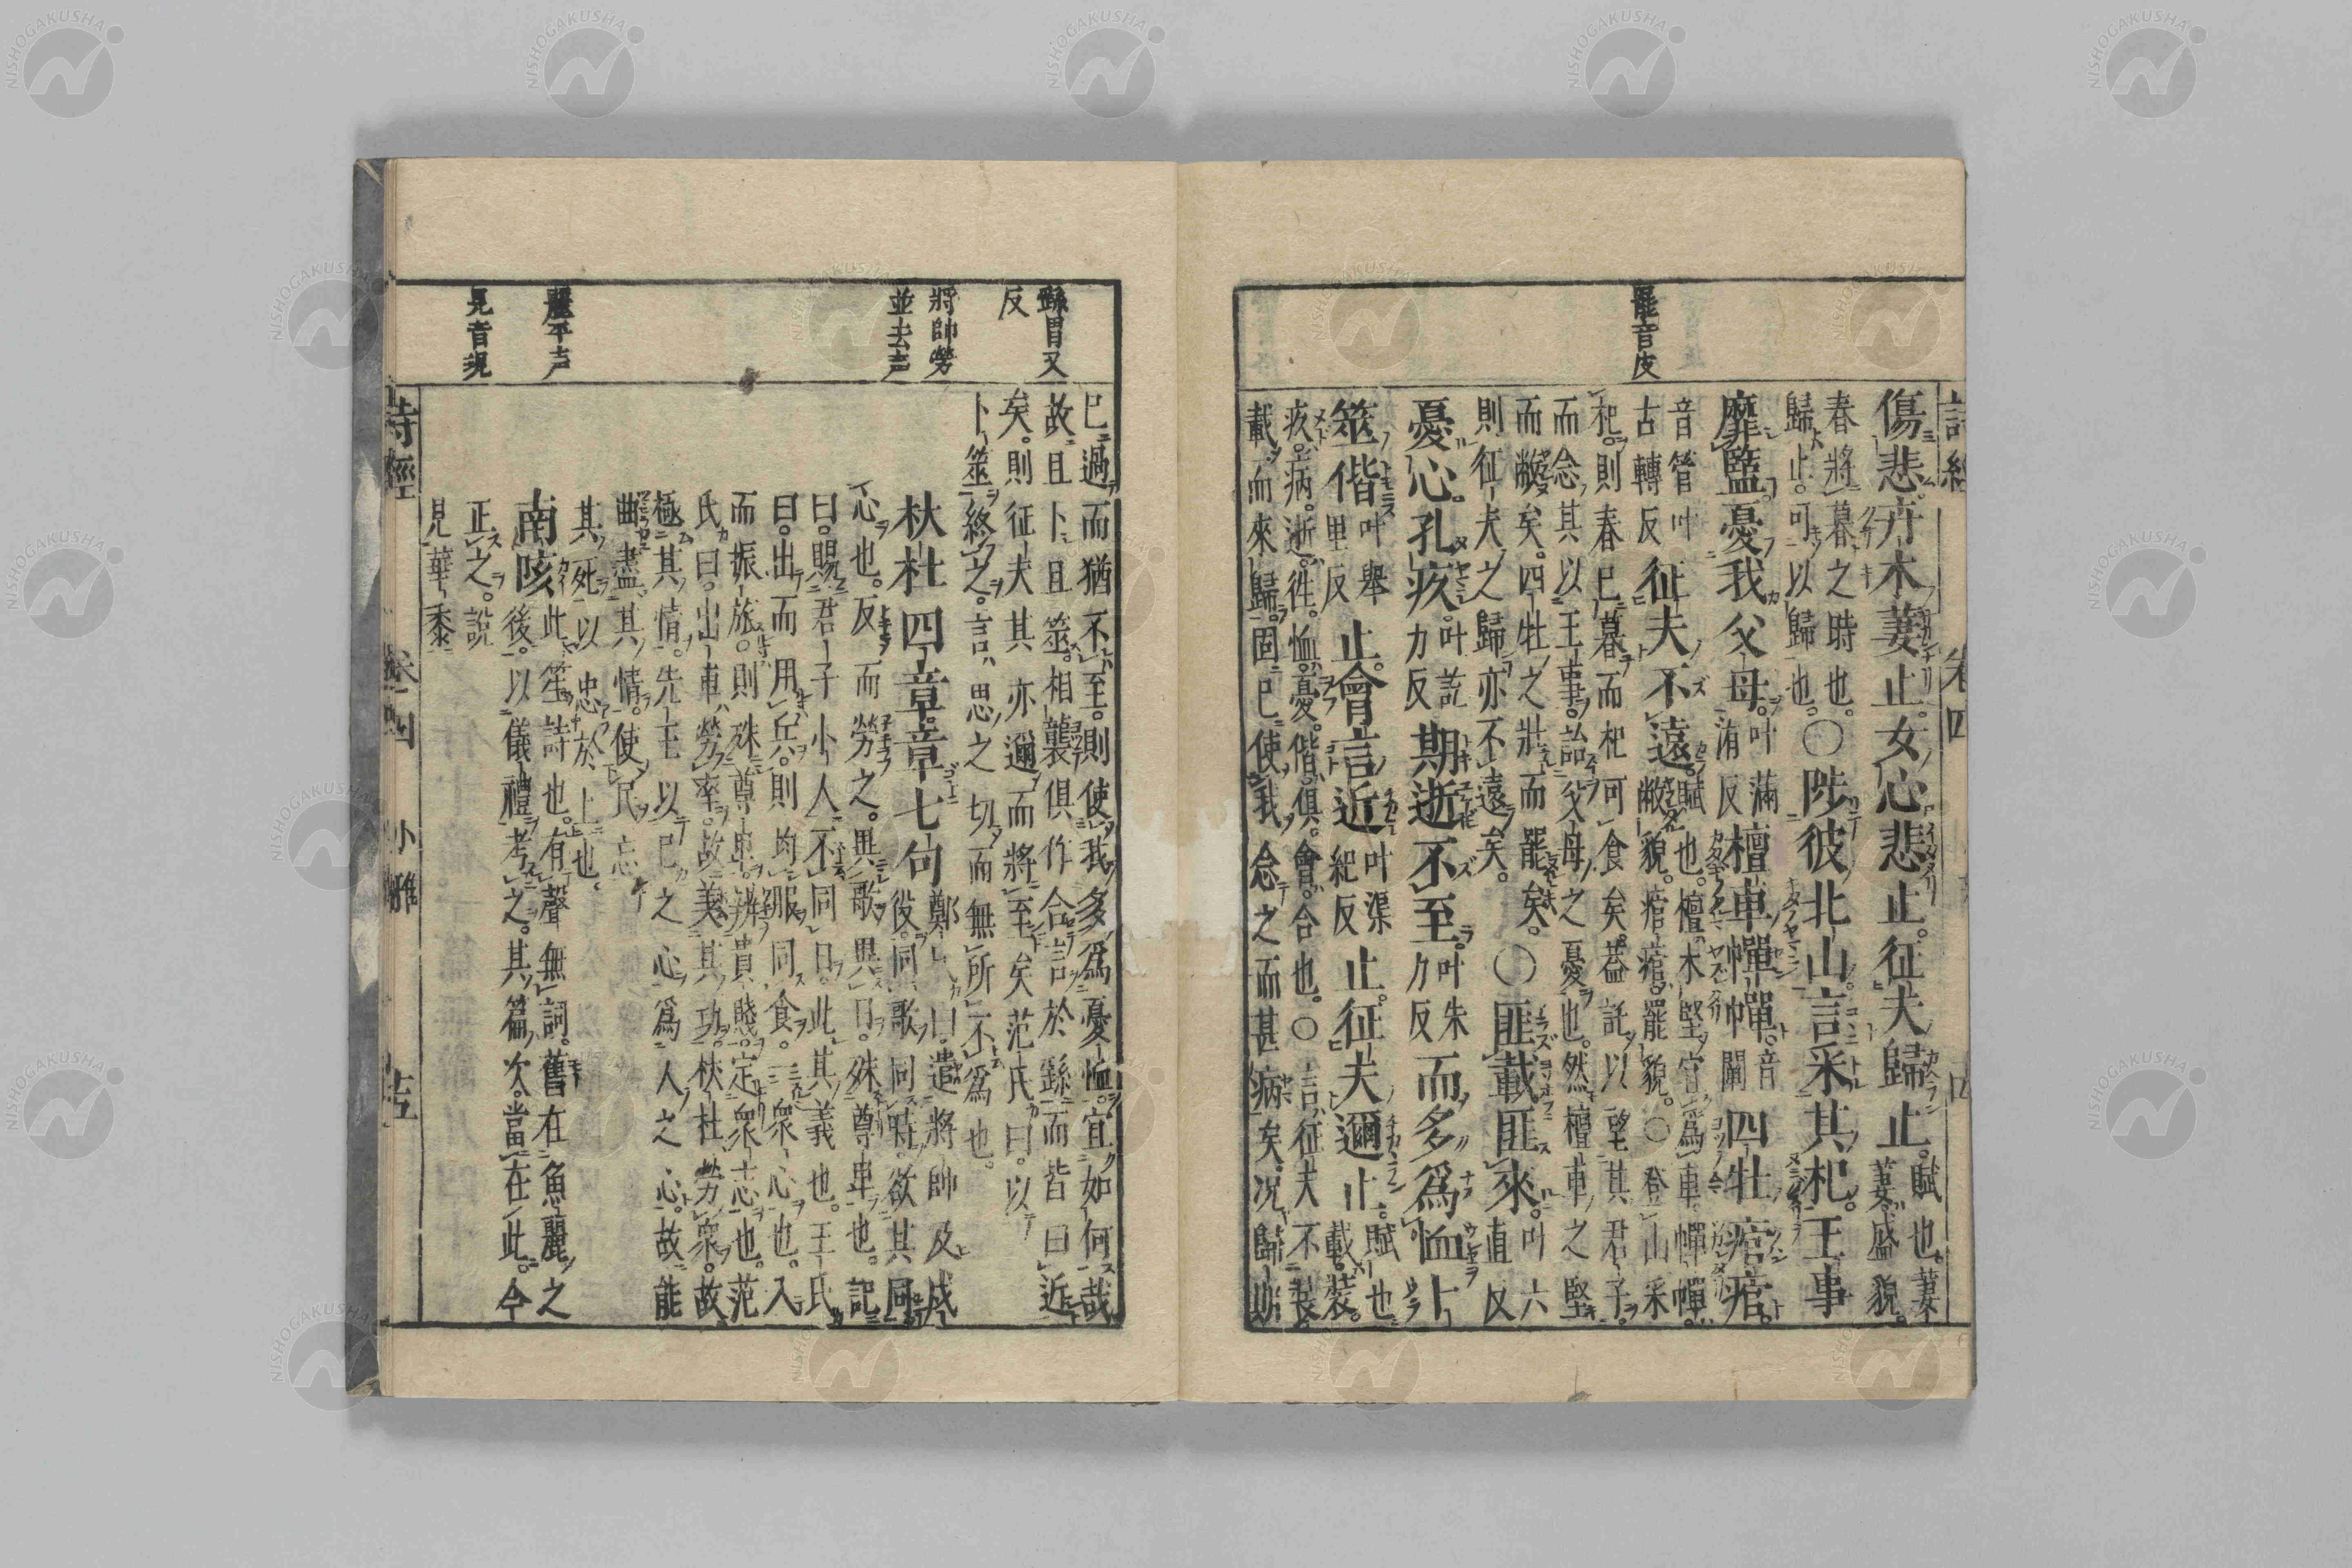 罷音皮
傷悲。卉木萋止。女心悲止。征夫歸止。賦也。萋
萋盛貌。
春將暮之時也。
歸止。可以歸也。
〇陟彼北山。言采其杞。王事
靡盬。憂我父母。叶滿
洧反
檀車幝幝。音
闡
四牡痯痯。
音管叶
古轉反
征夫不遠。賦也。檀木堅。宜爲車。幝幝。
敝貌。痯痯。罷貌。〇登山采
杞。則春已暮而杞可食矣。葢託以望其君子。
而念其以王事。詒父母之憂也。然檀車之堅
而敝矣。四牡之壯而罷矣。
則征夫之歸亦不遠矣。
〇匪載匪來。叶六
直反
憂心孔疚。叶訖
力反
期逝不至。叶朱
力反
而多爲恤。卜
筮偕叶舉
里反
止。會言近叶渠
紀反
止。征夫邇止。賦也
載。裝。
疚。病。逝。徃。恤。憂。偕。俱。會。合也。〇言征夫不裝
載而來歸。固已使我念之而甚病矣。况歸期
詩經 卷四
繇胃又
反
將帥勞
並去声
麗平声
見音現
已過而猶不至。則使我多爲憂恤。宜如何哉
故且卜且筮。相襲俱作。合言於繇而皆曰近
矣。則征夫其亦邇而將至矣。范氏曰。以
卜筮終之。言思之切而無所不爲也。
杕杜四章章七句鄭氏曰。遣將帥及戍
役。同歌同時。欲其同
心也。反而勞之。異歌異日。殊尊卑也。記
曰。賜君子小人。不同日。此其義也。王氏
曰。出而用兵。則均服同食。一衆心也。入
而振旅。則殊尊卑。辨貴賤。定衆志也。范
氏曰。出車勞率。故美其功。杕杜勞衆。故
極其情。先王以己之心爲人之心。故能
曲盡其情。使民忘
其死以忠於上也。
南陔此笙詩也。有聲無詞。舊在魚麗之
後。以儀禮考之。其篇次當在此。今
正之。說
見華黍
詩經 卷四 小雅